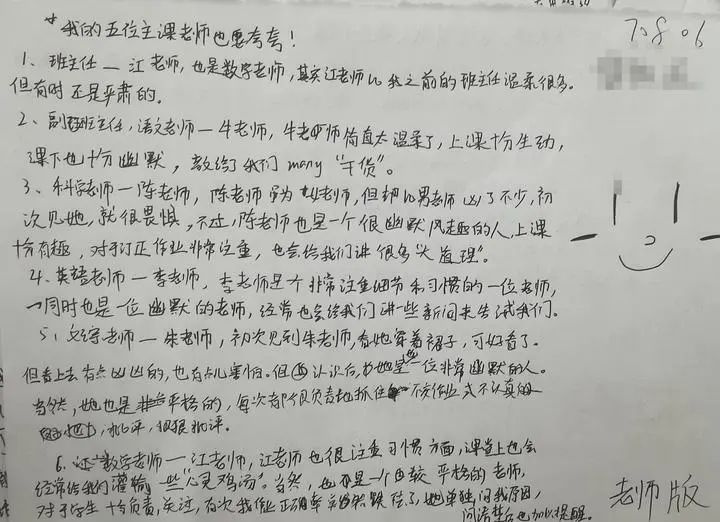 *我的五位主课老师也要夸夸!
70806
1、班主任—江老师,也是数学老师,其实江老师比我之前的班主任温柔很多。
但有时还是严肃的。
2、副班主任,语文老师—牛老师,牛老师简直太温柔了,上课十分生动,
课下也十分幽默,教给了我们many“干货”。
3、科学老师—陈老师,陈老师虽为女老师,但却比男老师凶了不少,初
次见她,就很畏惧,不过,陈老师也是一个很幽默风趣的人,上课
十分有趣,对于订正作业非常注重,也会给我们讲很多“大道理”。
4、英语老师—李老师,李老师是个非常注重细节和习惯的一位老师,
同时也是一位幽默的老师,经常也会给我们讲一些新闻来告诫我们。
5、老师—朱老师,初次见到朱老师,看她穿着裙子,可好看了。
但看上去有点凶凶的,也有点儿害怕。但认识后,她是一位非常幽默的人。
当然,她也是严格的,每次都很负责地抓住不交作业或不认真的
同学,批评,狠狠批评。
6、数学老师—江老师,江老师也很注重习惯方面,课堂上也会
经常给我们灌输一些“心灵鸡汤”。当然,也是一个比较严格的老师,
对于学生十分负责,关注,有次我作业正确率突然跌了,她单独问我原因,
问清楚后也加以提醒。
老师版